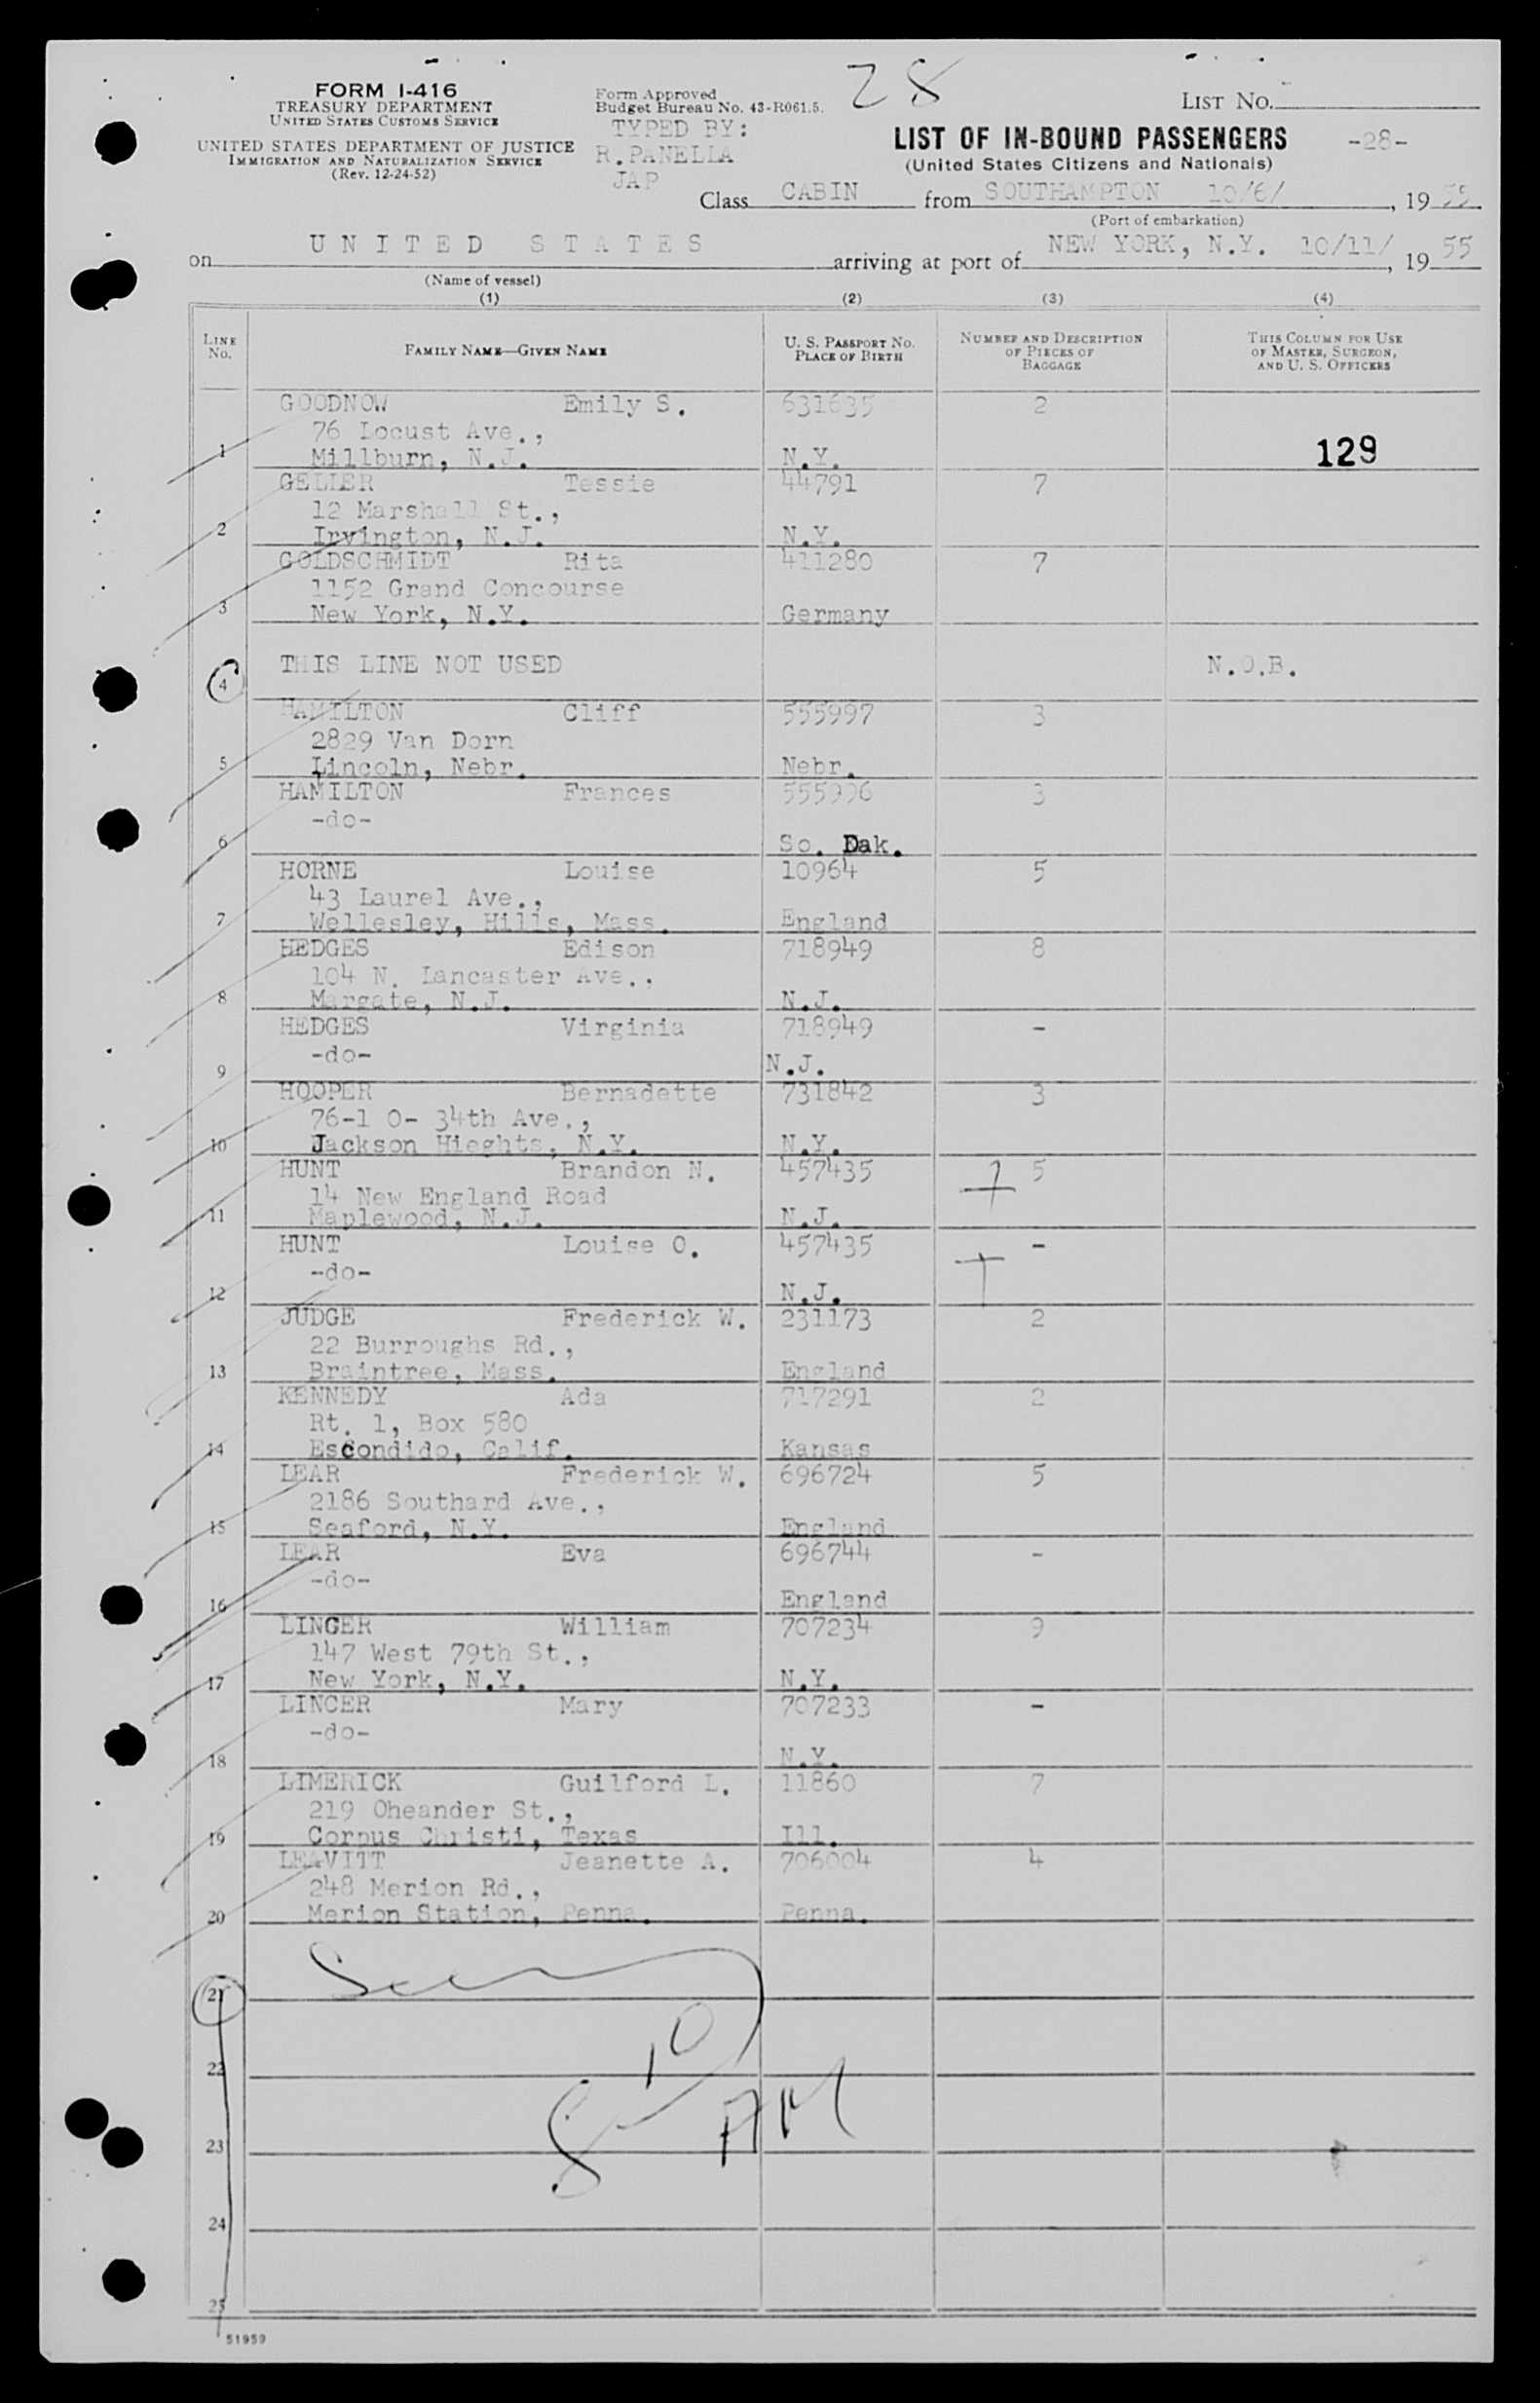 28
FORM I-416
TREASURY DEPARTMENT
UNITED STATES CUSTOMS SERVICE
UNITED STATES DEPARTMENT OF JUSTICE
IMMIGRATION AND NATURALIZATION SERVICE
(Rev. 12-24-52)
Form Approved
Budget Bureau No. 43-R061.5.
TYPED BY:
R.PANELLA
JAP
LIST NO.
LIST OF IN-BOUND PASSENGERS -28-
(United States Citizens and Nationals)
Class CABIN from SOUTHAMPTON 10/6/, 19 55
(Port of embarkation)
on UNITED STATES arriving at port of NEW YORK, N.Y. 10/11/, 19 55
(Name of vessel)
(1) (2) (3) (4)
LINE No. FAMILY NAME—GIVEN NAME U. S. PASSPORT NO. PLACE OF BIRTH NUMBER AND DESCRIPTION OF PIECES OF BAGGAGE THIS COLUMN FOR USE OF MASTER, SURGEON, AND U. S. OFFICERS
GOODNOW Emily S. 631635 2
76 Locust Ave.,
1 Millburn, N.J. N.Y. 129
GELLER Tessie 44791 7
12 Marshall St.,
2 Irvington, N.J. N.Y.
GOLDSCHMIDT Rita 411280 7
1152 Grand Concourse
3 New York, N.Y. Germany
4 THIS LINE NOT USED N.O.B.
HAMILTON Cliff 555997 3
2829 Van Dorn
5 Lincoln, Nebr. Nebr.
HAMILTON Frances 555996 3
-do-
6 So. Dak.
HORNE Louise 10964 5
43 Laurel Ave.,
7 Wellesley, Hills, Mass. England
HEDGES Edison 718949 8
104 N. Lancaster Ave.,
8 Margate, N.J. N.J.
HEDGES Virginia 718949 -
-do-
9 N.J.
HOOPER Bernadette 731842 3
76-1 0- 34th Ave.,
10 Jackson Hieghts, N.Y. N.Y.
HUNT Brandon N. 457435 5
14 New England Road
11 Maplewood, N.J. N.J.
HUNT Louise O. 457435 -
-do-
12 N.J.
JUDGE Frederick W. 231173 2
22 Burroughs Rd.,
13 Braintree, Mass. England
KENNEDY Ada 717291 2
Rt. 1, Box 580
14 Escondido, Calif. Kansas
LEAR Frederick W. 696724 5
2186 Southard Ave.,
15 Seaford, N.Y. England
LEAR Eva 696744 -
-do-
16 England
LINGER William 707234 9
147 West 79th St.,
17 New York, N.Y. N.Y.
LINGER Mary 707233 -
-do-
18 N.Y.
LIMERICK Guilford L. 11860 7
219 Oheander St.,
19 Corpus Christi, Texas Ill.
LEAVITT Jeanette A. 706004 4
248 Merion Rd.,
20 Merion Station, Penna. Penna.
21
22
10
AM
23
24
25
51959